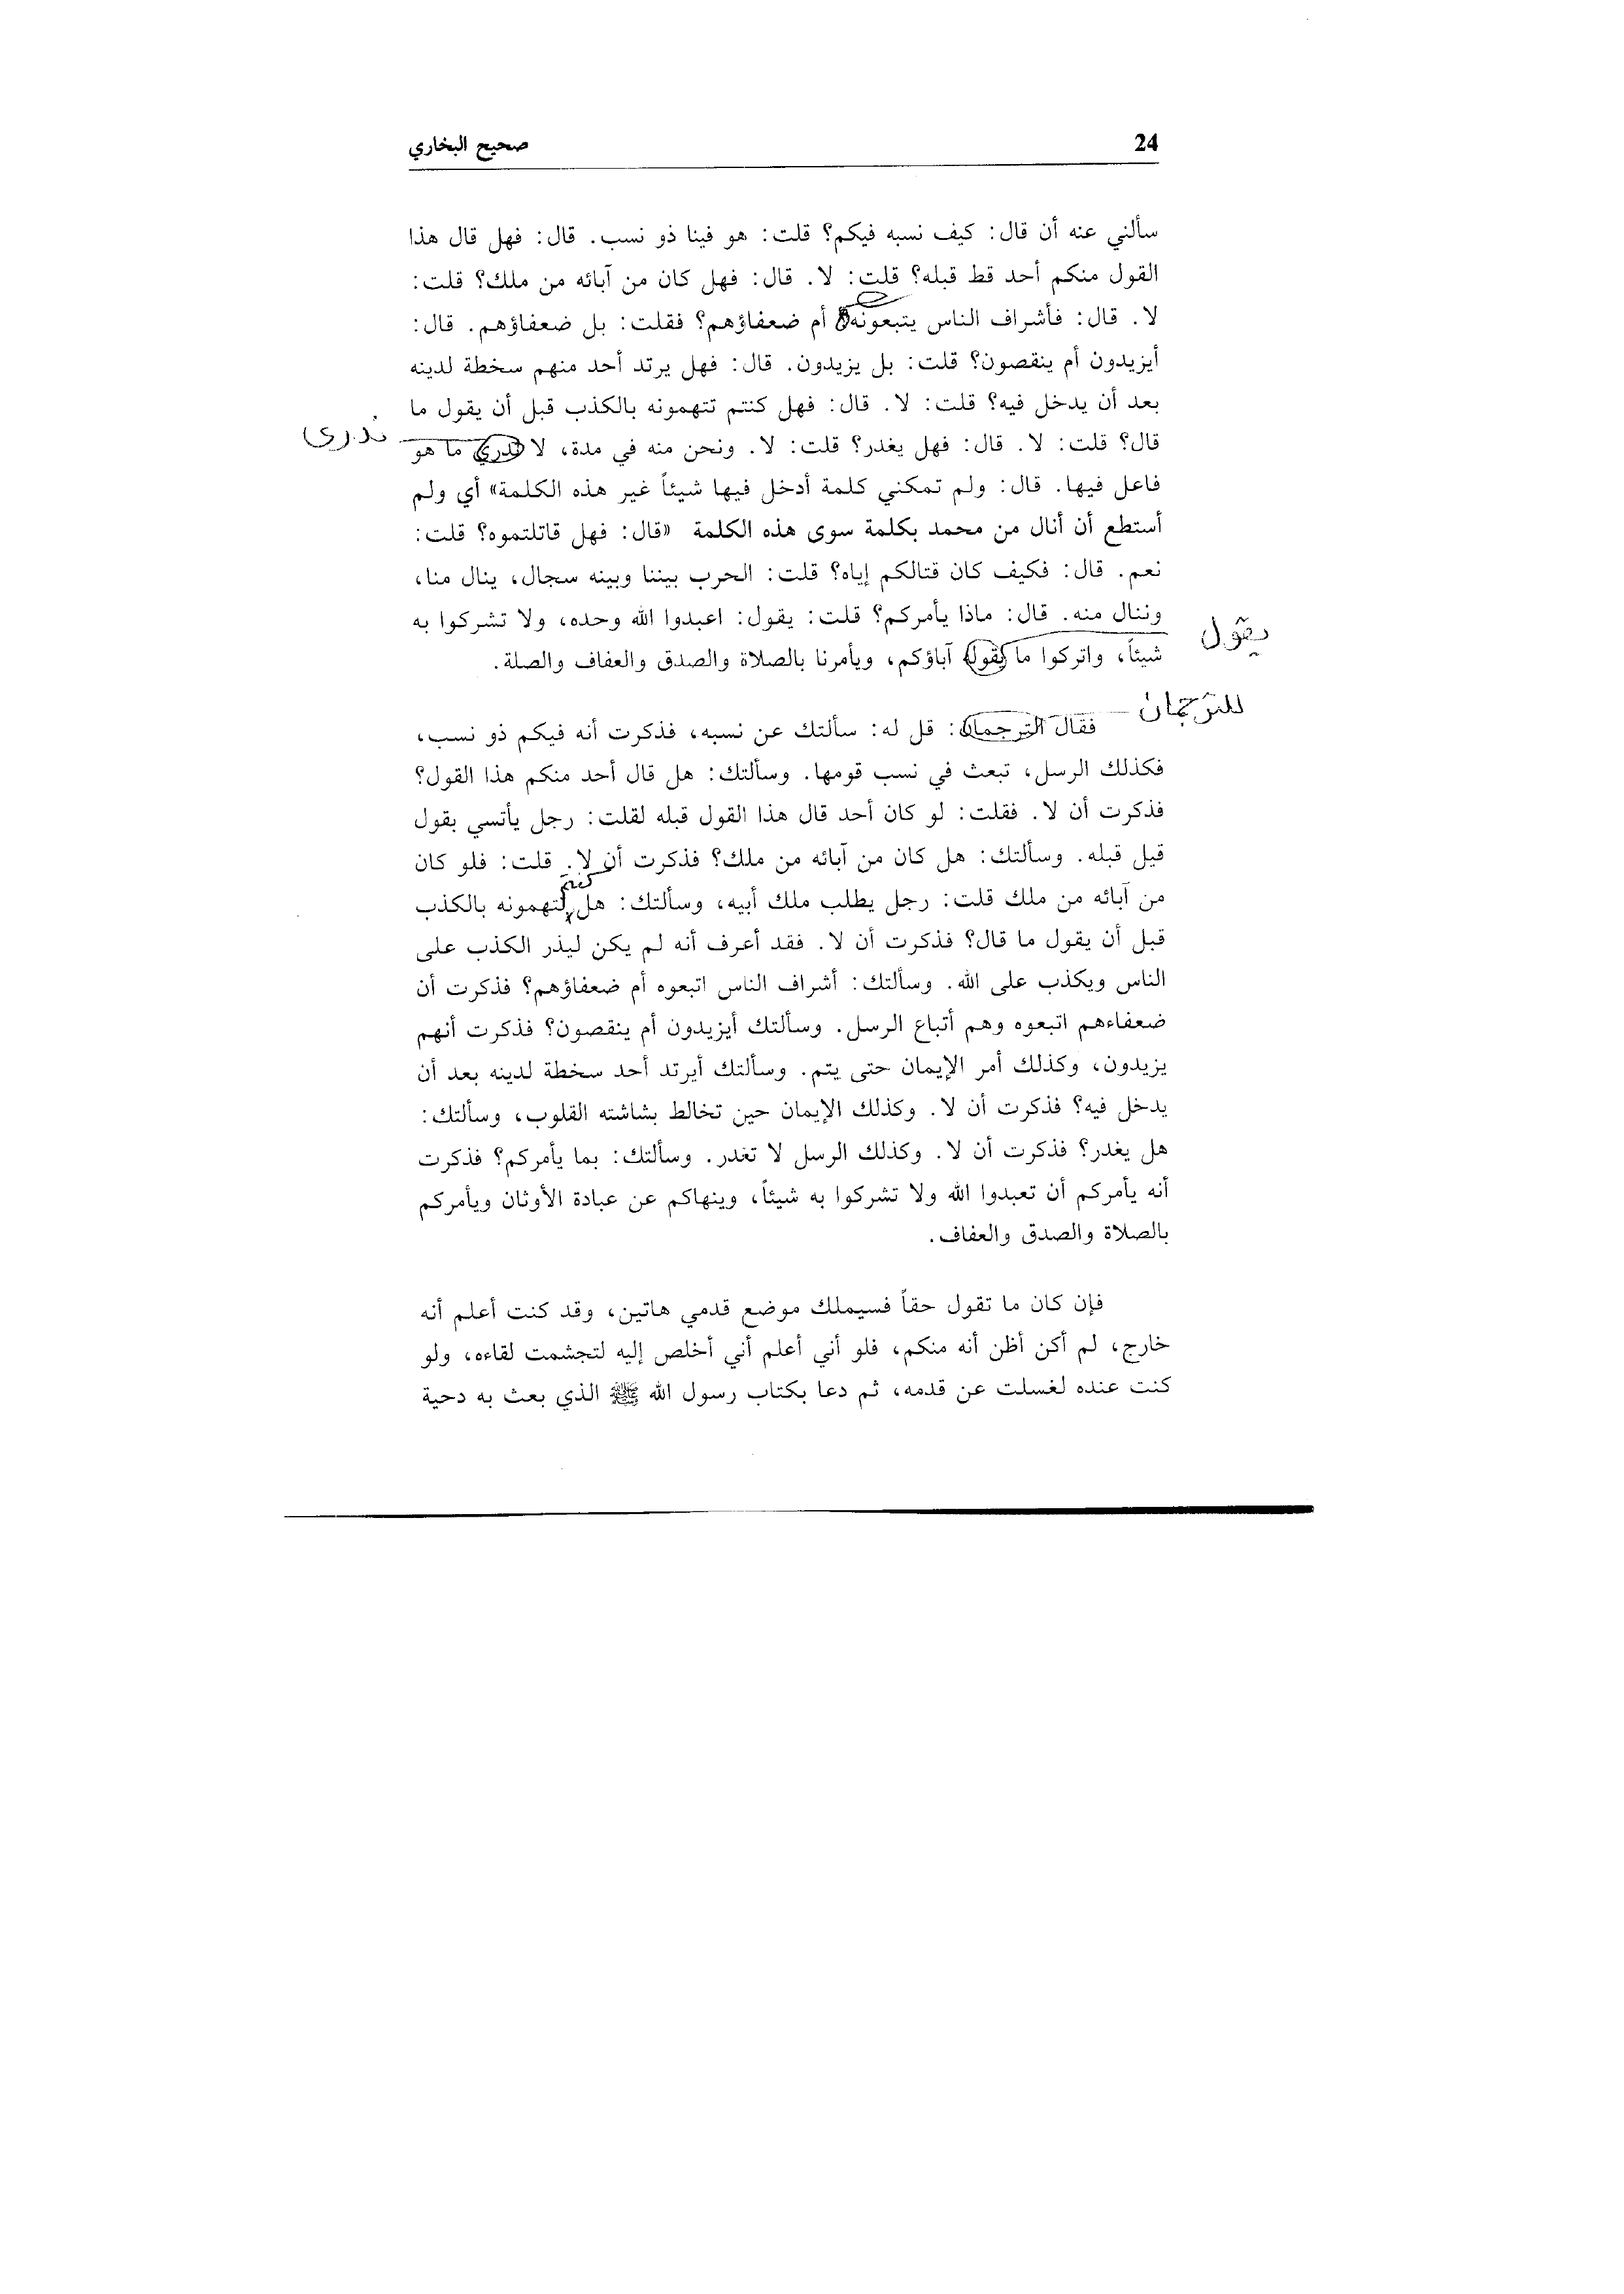 24
صحيح البخاري
سألني عنه أن قال: كيف نسبه فيكم؟ قلت: هو فينا ذو نسب. قال: فهل قال هذا
القول منكم أحد قط قبله؟ قلت: لا. قال: فهل كان من آبائه من ملك؟ قلت:
لا. قال: فأشراف الناس يتبعونه أم ضعفاؤهم؟ فقلت: بل ضعفاؤهم. قال:
أيزيدون أم ينقصون؟ قلت: بل يزيدون. قال: فهل يرتد أحد منهم سخطة لدينه
بعد أن يدخل فيه؟ قلت: لا. قال: فهل كنتم تتهمونه بالكذب قبل أن يقول ما
قال؟ قلت: لا. قال: فهل يغدر؟ قلت: لا. ونحن منه في مدة، لا ندري ما هو
ندرى
فاعل فيها. قال: ولم تمكني كلمة أدخل فيها شيئاً غير هذه الكلمة» أي ولم
أستطع أن أنال من محمد بكلمة سوى هذه الكلمة «قال: فهل قاتلتموه؟ قلت:
نعم. قال: فكيف كان قتالكم إياه؟ قلت: الحرب بيننا وبينه سجال، ينال منا،
وننال منه. قال: ماذا يأمركم؟ قلت: يقول: اعبدوا الله وحده، ولا تشركوا به
يقول
شيئاً، واتركوا ما يقول آباؤكم، ويأمرنا بالصلاة والصدق والعفاف والصلة.
للترجمان
فقال الترجمان: قل له: سألتك عن نسبه، فذكرت أنه فيكم ذو نسب،
فكذلك الرسل، تبعث في نسب قومها. وسألتك: هل قال أحد منكم هذا القول؟
فذكرت أن لا. فقلت: لو كان أحد قال هذا القول قبله لقلت: رجل يأتسي بقول
قيل قبله. وسألتك: هل كان من آبائه من ملك؟ فذكرت أن لا. قلت: فلو كان
كنتم
من آبائه من ملك قلت: رجل يطلب ملك أبيه، وسألتك: هل تتهمونه بالكذب
قبل أن يقول ما قال؟ فذكرت أن لا. فقد أعرف أنه لم يكن ليذر الكذب على
الناس ويكذب على الله. وسألتك: أشراف الناس اتبعوه أم ضعفاؤهم؟ فذكرت أن
ضعفاءهم اتبعوه وهم أتباع الرسل. وسألتك أيزيدون أم ينقصون؟ فذكرت أنهم
يزيدون، وكذلك أمر الإيمان حتى يتم. وسألتك أيرتد أحد سخطة لدينه بعد أن
يدخل فيه؟ فذكرت أن لا. وكذلك الإيمان حين تخالط بشاشته القلوب، وسألتك:
هل يغدر؟ فذكرت أن لا. وكذلك الرسل لا تغدر. وسألتك: بما يأمركم؟ فذكرت
أنه يأمركم أن تعبدوا الله ولا تشركوا به شيئاً، وينهاكم عن عبادة الأوثان ويأمركم
بالصلاة والصدق والعفاف.
فإن كان ما تقول حقاً فسيملك موضع قدمي هاتين، وقد كنت أعلم أنه
خارج، لم أكن أظن أنه منكم، فلو أني أعلم أني أخلص إليه لتجشمت لقاءه، ولو
كنت عنده لغسلت عن قدمه، ثم دعا بكتاب رسول الله ﷺ الذي بعث به دحية